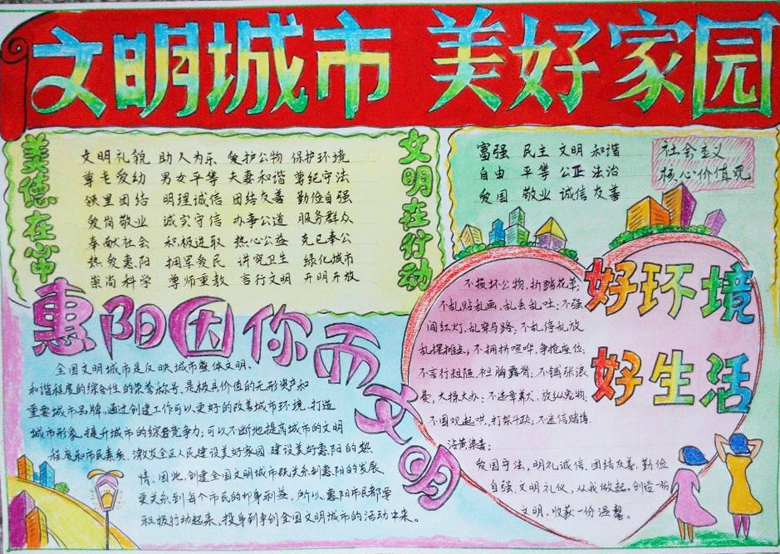 文明城市 美好家园
美德在心中
文明礼貌 助人为乐 爱护公物 保护环境
尊老爱幼 男女平等 夫妻和谐 尊纪守法
邻里团结 明理诚信 团结友善 勤俭自强
爱岗敬业 诚实守信 办事公道 服务群众
奉献社会 积极进取 热心公益 克已奉公
热爱惠阳 拥军爱民 讲究卫生 绿化城市
崇尚科学 尊师重教 言行文明 开明开放
文明在行动
富强 民主 文明 和谐
自由 平等 公正 法治
爱国 敬业 诚信 友善
社会主义
核心价值观
惠阳因你而文明
全国文明城市是反映城市整体文明、
和谐程度的综合性的荣誉称号、是极具价值的无形资产和
重要城市品牌。通过创建工作可以更好的改善城市环境、打造
城市形象、提升城市的综合竞争力;可以不断地提高城市的文明
程度和市民素养、激发全区人民建设美好家园、建设美好惠阳的热
情、因此,创建全国文明城市既关系到惠阳的发展、
更关系到每个市民的切身利益。所以、惠阳市民都要
积极行动起来、投身到争创全国文明城市的活动中来。
好环境
好生活
不损坏公物、折踏花草;
不乱贴乱画、乱丢乱吐;不强
闯红灯、乱穿马路;不乱停乱放
乱摆摊点;不拥挤喧哗、争抢座位;
不言行粗俗、袒胸露背;不铺张浪
费、大操大办;不违章养犬、放纵宠物;
不围观起哄、打架斗殴;不迷信赌博、
治黄禁毒;
爱国守法,明礼诚信、团结友善、勤俭
自强、文明礼仪,从我做起。创造一份
文明、收获一份温馨。